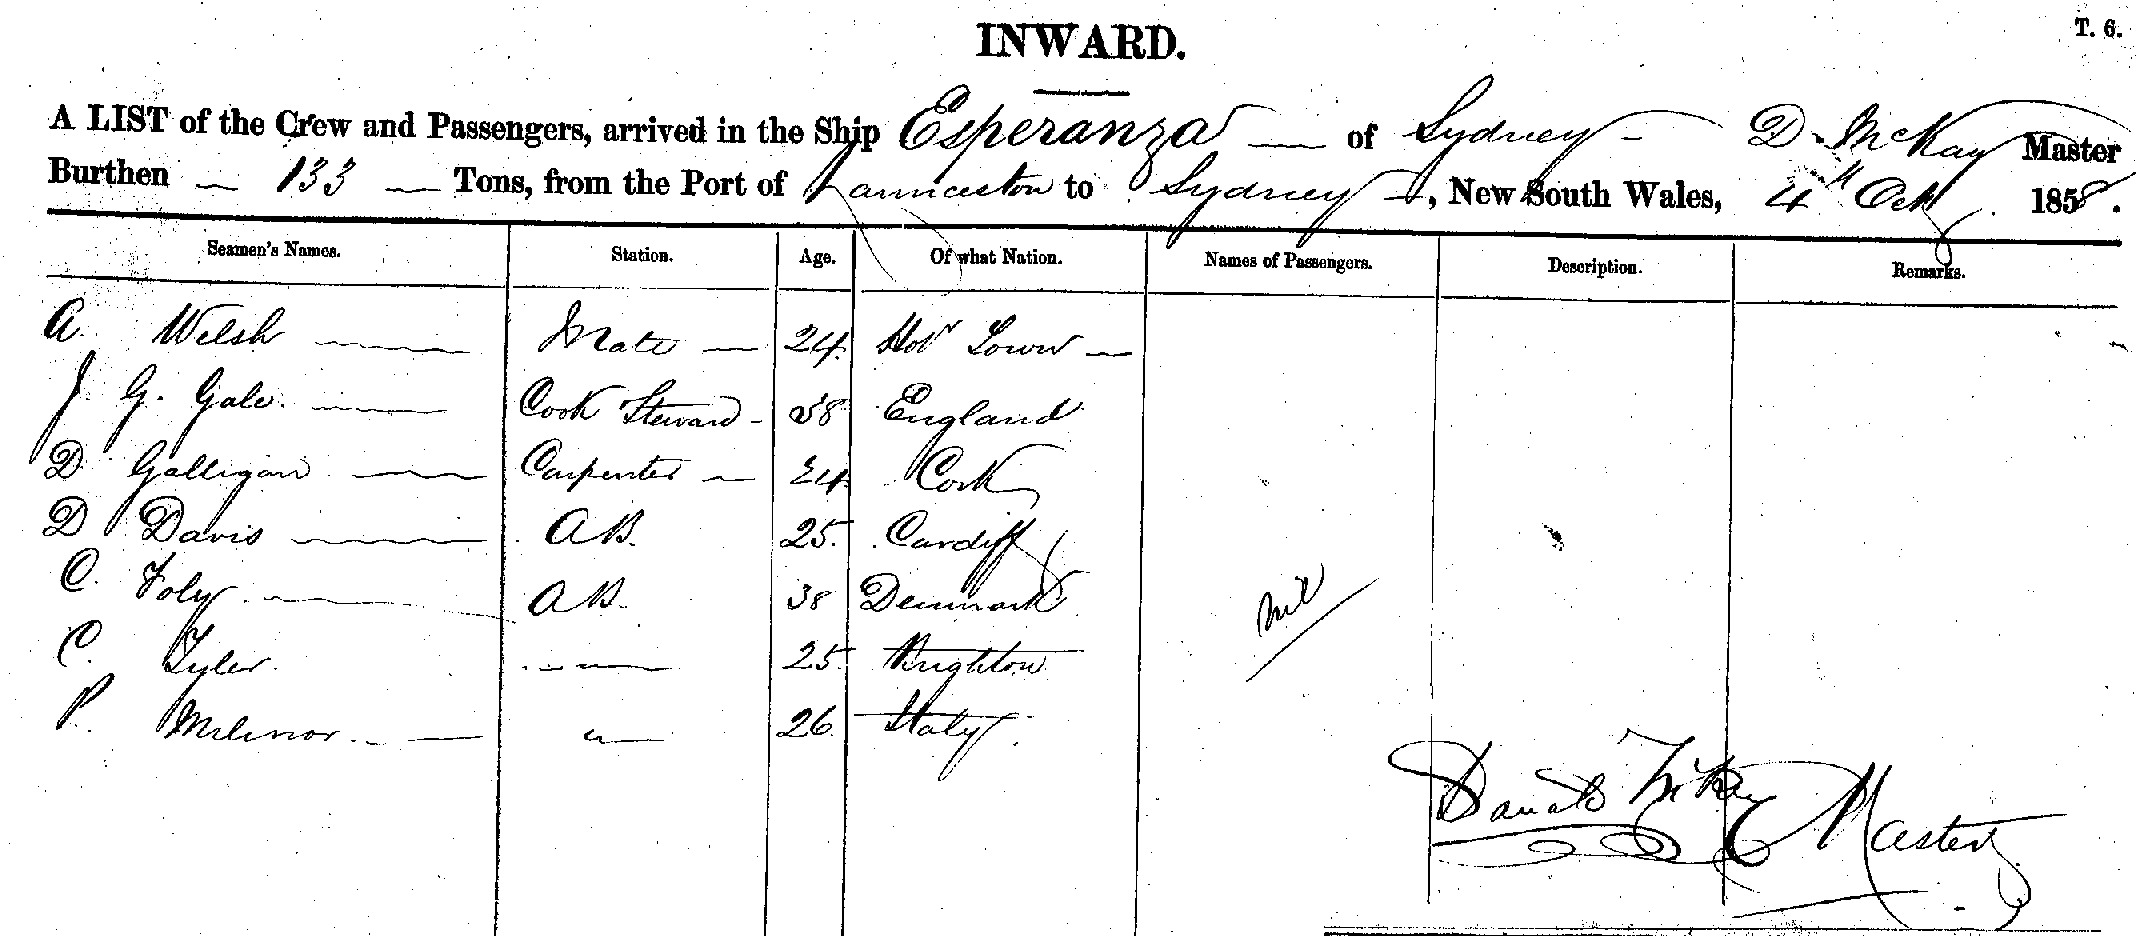 T. 6.
INWARD.
A LIST of the Crew and Passengers, arrived in the Ship Esperanza of Sydney D McKay Master
Burthen 133 Tons, from the Port of Launceston to Sydney, New South Wales, 4th Oct 1858.
Seamen's Names. Station. Age. Of what Nation. Names of Passengers. Description. Remarks.
A. Welsh Mate 24 Hob Town
J G. Gale Cook Steward 38 England
D Galligan Carpenter 24 Cork
D Davis AB. 25 Cardiff
C. Foly AB. 38 Denmark
C. Tyler 25 Brighton
P. 26 Italy
nil
Donald McKay Master